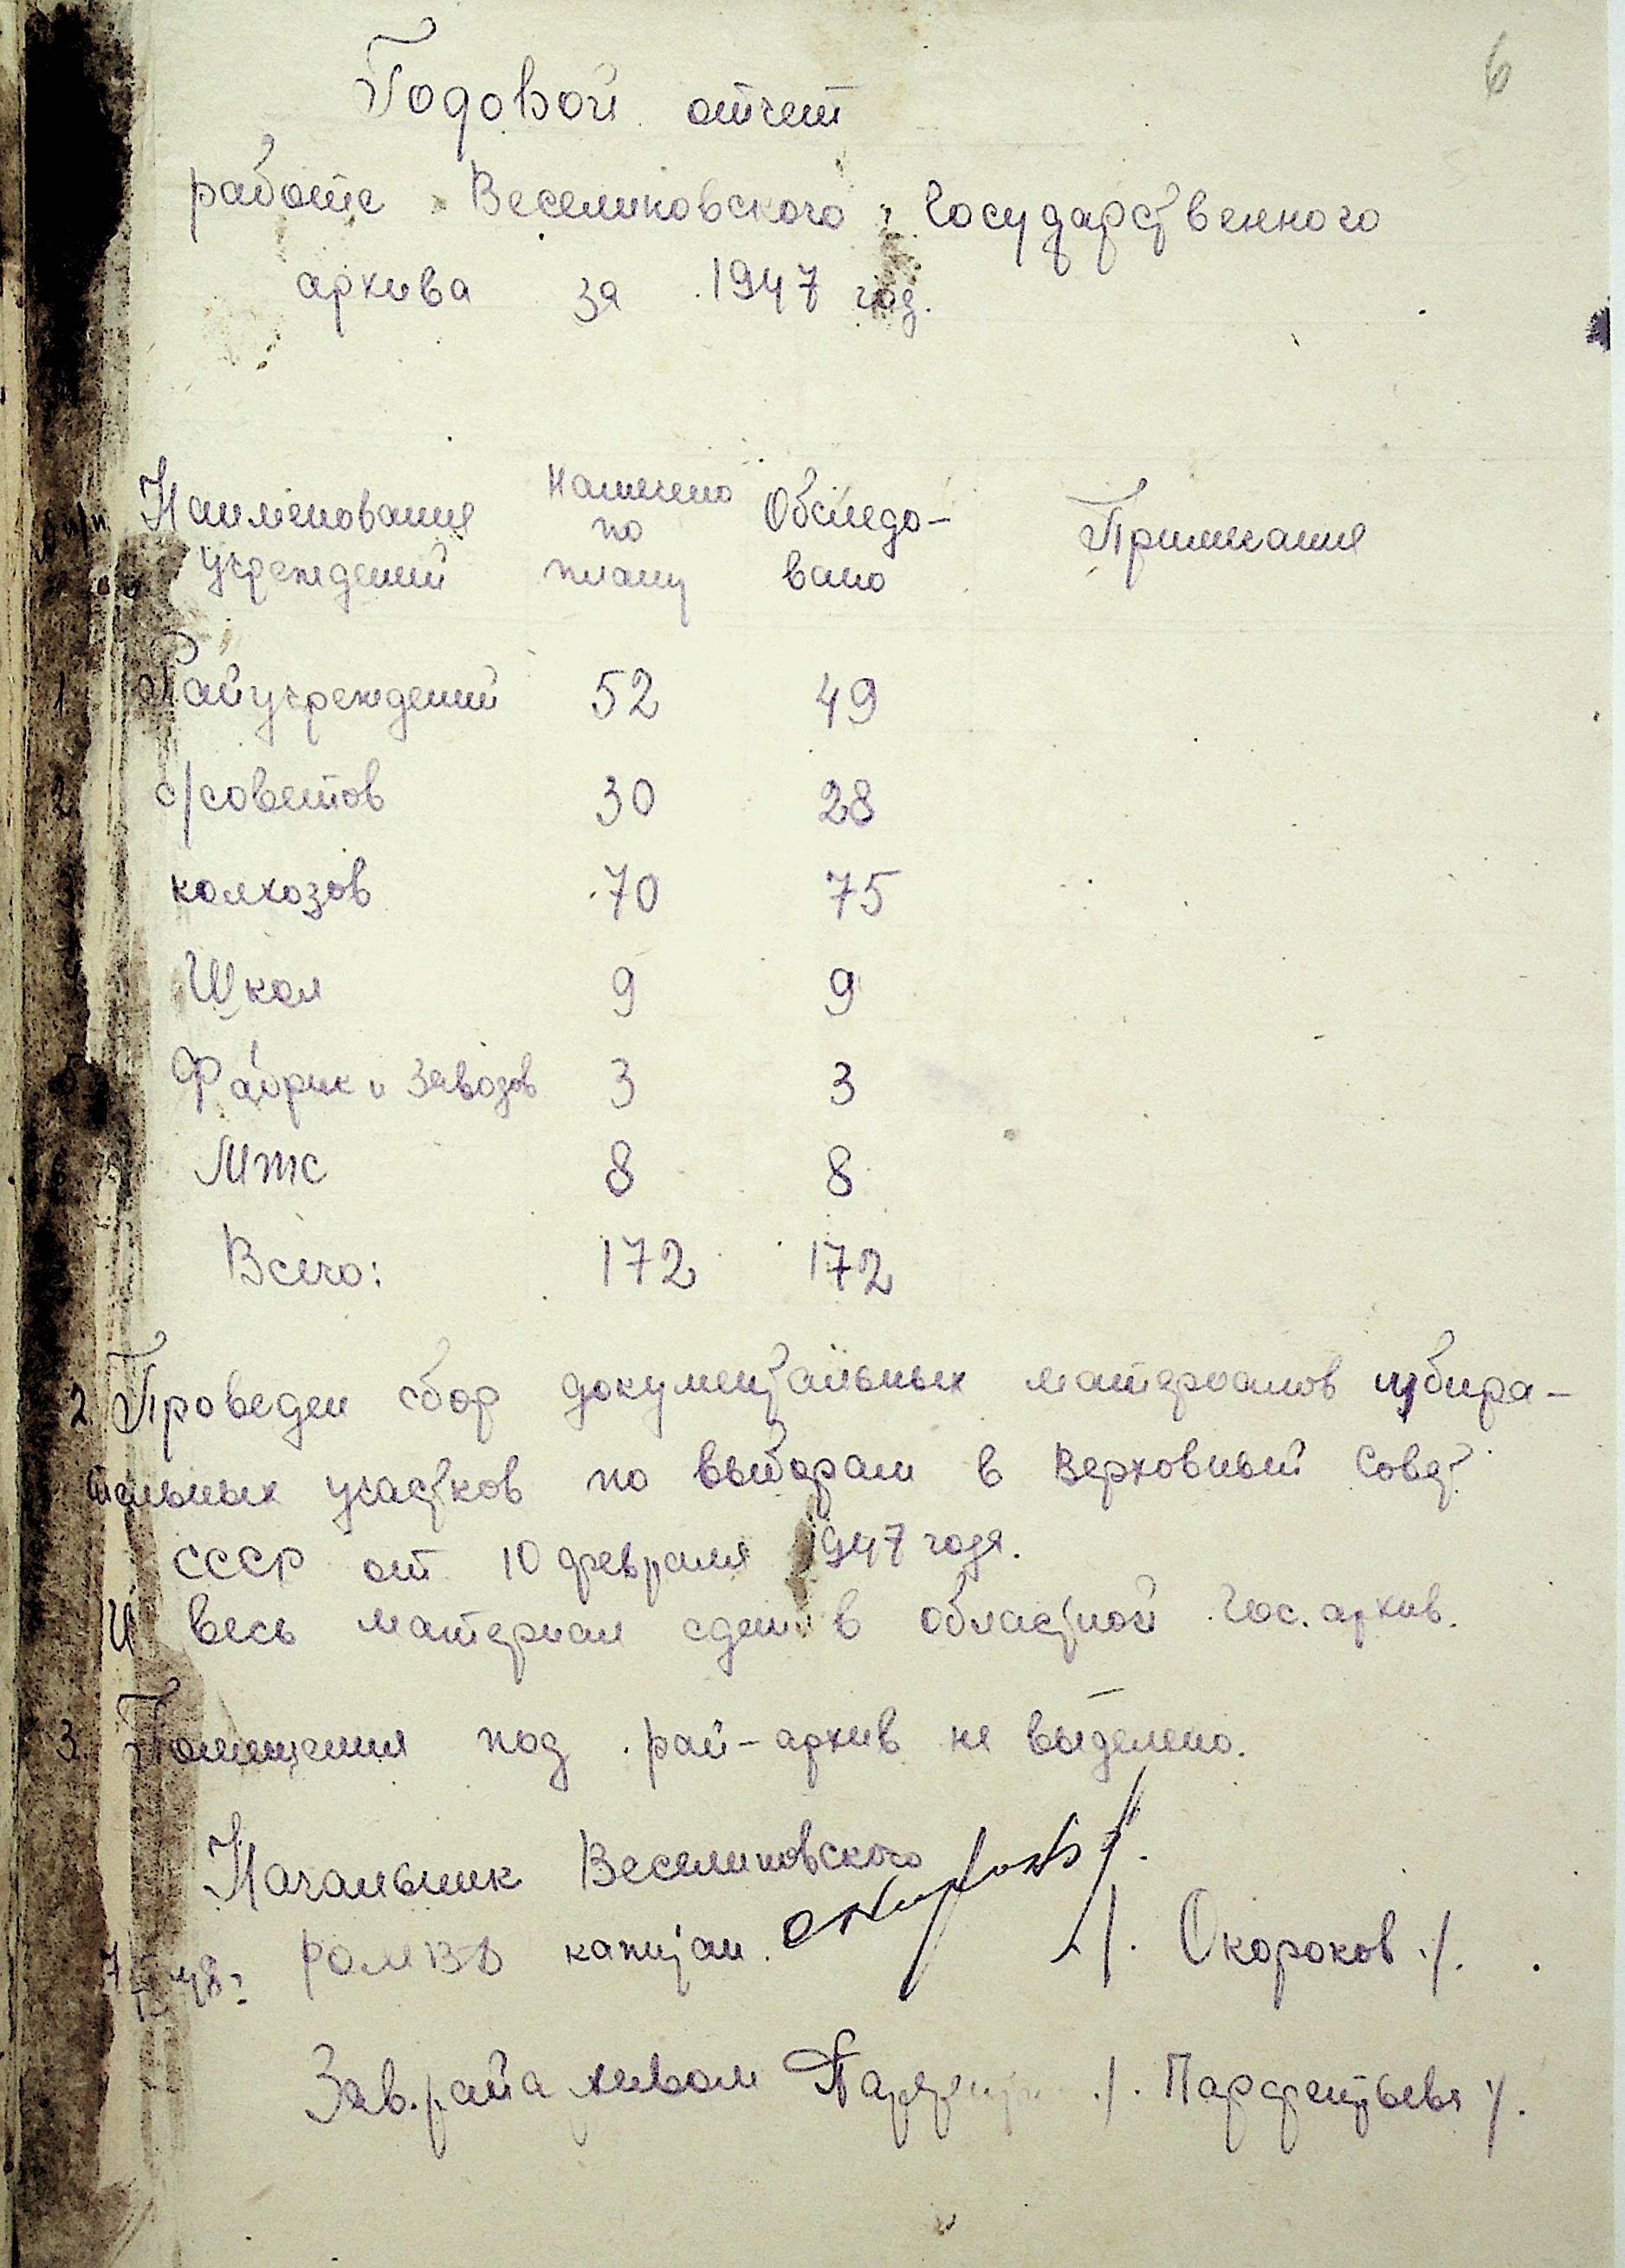 6
Годовой отчет
работе Веселиновского Государственного
архива за 1947 год.
Наименования Намечено по плану Обследо- Примечание
учреждений вано
1 Райучреждений 52 49
2 с/советов 30 28
колхозов 70 75
Школ 9 9
5 Фабрик и заводов 3 3
МТС 8 8
Всего: 172 172
2. Проведен сбор документальных материалов избира-
тельных участков по выборам в Верховный Совет
СССР от 10 февраля 1947 года.
И весь материал сдан в областной Гос. архив.
3. Помещения под рай-архив не выделено.
Начальник Веселиновского
РОМВД капитан /. Окороков ./.
Зав. райархивом /. Парфентьева /.